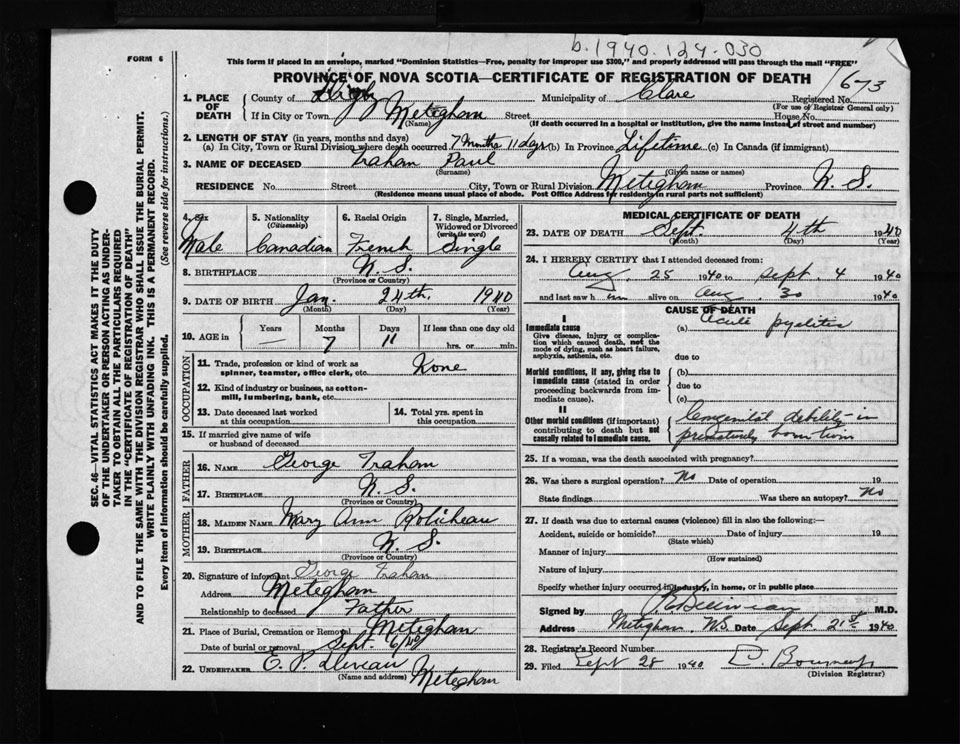 b.1940.124.030
FORM 6
This form if placed in an envelope, marked "Dominion Statistics—Free, penalty for improper use $300," and properly addressed will pass through the mail "FREE"
PROVINCE OF NOVA SCOTIA—CERTIFICATE OF REGISTRATION OF DEATH
673
SEC. 46—VITAL STATISTICS ACT MAKES IT THE DUTY
OF THE UNDERTAKER OR PERSON ACTING AS UNDER-
TAKER TO OBTAIN ALL THE PARTICULARS REQUIRED
IN THE "CERTIFICATE OF REGISTRATION OF DEATH"
AND TO FILE THE SAME WITH THE DIVISION REGISTRAR WHO SHALL ISSUE THE BURIAL PERMIT.
WRITE PLAINLY WITH UNFADING INK. THIS IS A PERMANENT RECORD.
Every item of information should be carefully supplied. (See reverse side for instructions.)
1. PLACE OF DEATH County of Digby Municipality of Clare Registered No.
(For use of Registrar General only)
If in City or Town Meteghan Street House No.
(Name) (If death occurred in a hospital or institution, give the name instead of street and number)
2. LENGTH OF STAY (in years, months and days)
(a) In City, Town or Rural Division where death occurred 7 Months 11 days (b) In Province Lifetime (c) In Canada (if immigrant)
3. NAME OF DECEASED Trahan Paul
(Surname) (Given name or names)
RESIDENCE No. Street City, Town or Rural Division Meteghan Province N. S.
(Residence means usual place of abode. Post Office Address for residents in rural parts not sufficient)
4. Sex 5. Nationality 6. Racial Origin 7. Single, Married,
(Citizenship) Widowed or Divorced
(write the word)
Male Canadian French Single
8. BIRTHPLACE N. S.
(Province or Country)
9. DATE OF BIRTH Jan. 24th. 1940
(Month) (Day) (Year)
10. AGE in Years Months Days If less than one day old
— 7 11 hrs. or min.
OCCUPATION
11. Trade, profession or kind of work as
spinner, teamster, office clerk, etc. None
12. Kind of industry or business, as cotton-
mill, lumbering, bank, etc.
13. Date deceased last worked 14. Total yrs. spent in
at this occupation this occupation
15. If married give name of wife
or husband of deceased
FATHER
16. NAME George Trahan
17. BIRTHPLACE N. S.
(Province or Country)
MOTHER
18. MAIDEN NAME Mary Ann Robicheau
19. BIRTHPLACE N. S.
(Province or Country)
20. Signature of informant George Trahan
Address Meteghan
Relationship to deceased Father
21. Place of Burial, Cremation or Removal Meteghan
Date of burial or removal Sept. 6/40
22. UNDERTAKER E. P. Deveau Meteghan
(Name and address)
MEDICAL CERTIFICATE OF DEATH
23. DATE OF DEATH Sept. 4th 1940
(Month) (Day) (Year)
24. I HEREBY CERTIFY that I attended deceased from:
Aug 25 1940 to Sept. 4 1940
and last saw h im alive on Aug. 30 1940
CAUSE OF DEATH
I
Immediate cause (a) Acute pyelitis
Give disease, injury or complica-
tion which caused death, not the
mode of dying, such as heart failure,
asphyxia, asthenia, etc. due to
Morbid conditions, if any, giving rise to (b)
immediate cause (stated in order due to
proceeding backwards from im-
mediate cause). (c)
II
Other morbid conditions (if important) Congenital debility in
contributing to death but not
causally related to immediate cause. prematurely born twin
25. If a woman, was the death associated with pregnancy?
26. Was there a surgical operation? No Date of operation 19
State findings Was there an autopsy? No
27. If death was due to external causes (violence) fill in also the following:—
Accident, suicide or homicide? Date of injury 19
(State which)
Manner of injury
(How sustained)
Nature of injury
Specify whether injury occurred in industry, in home, or in public place
Signed by M.D.
Address Meteghan, N.S. Date Sept. 21st 1940
28. Registrar's Record Number
29. Filed Sept 28 1940
(Division Registrar)